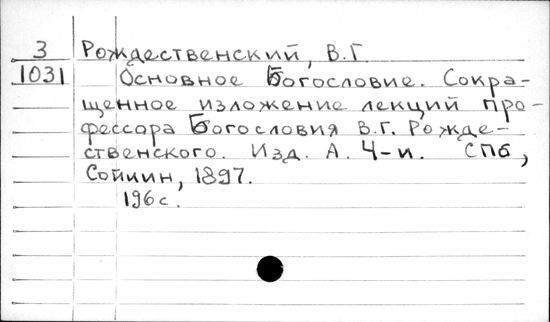 3 Рождественский, В.Г.
1031 Основное Богословие. Сокра-
щенное изложение лекций про-
фессора Богословия В.Г. Рожде-
ственского. Изд. А. Ч-и. СПб,
Сойкин, 1897.
196 с.